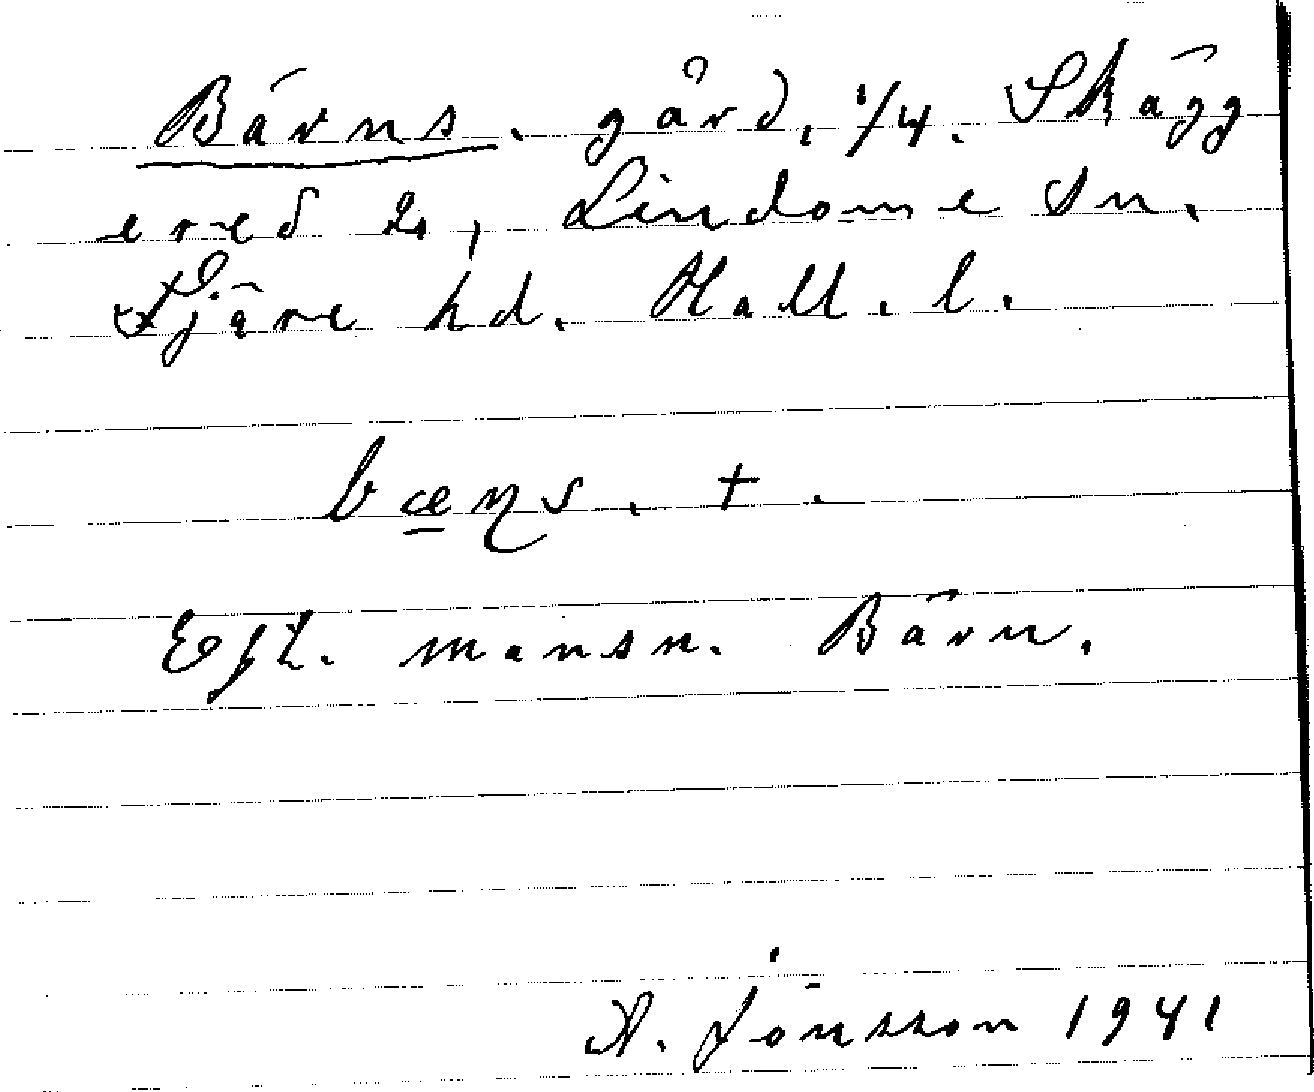 Bärns. gård, 1/4. Skägg
ered 2, Lindome sn.
Fjäre hd. Hall. l.
bæɳs. +.
Eft. mansn. Bärn.
A. Jönsson 1941